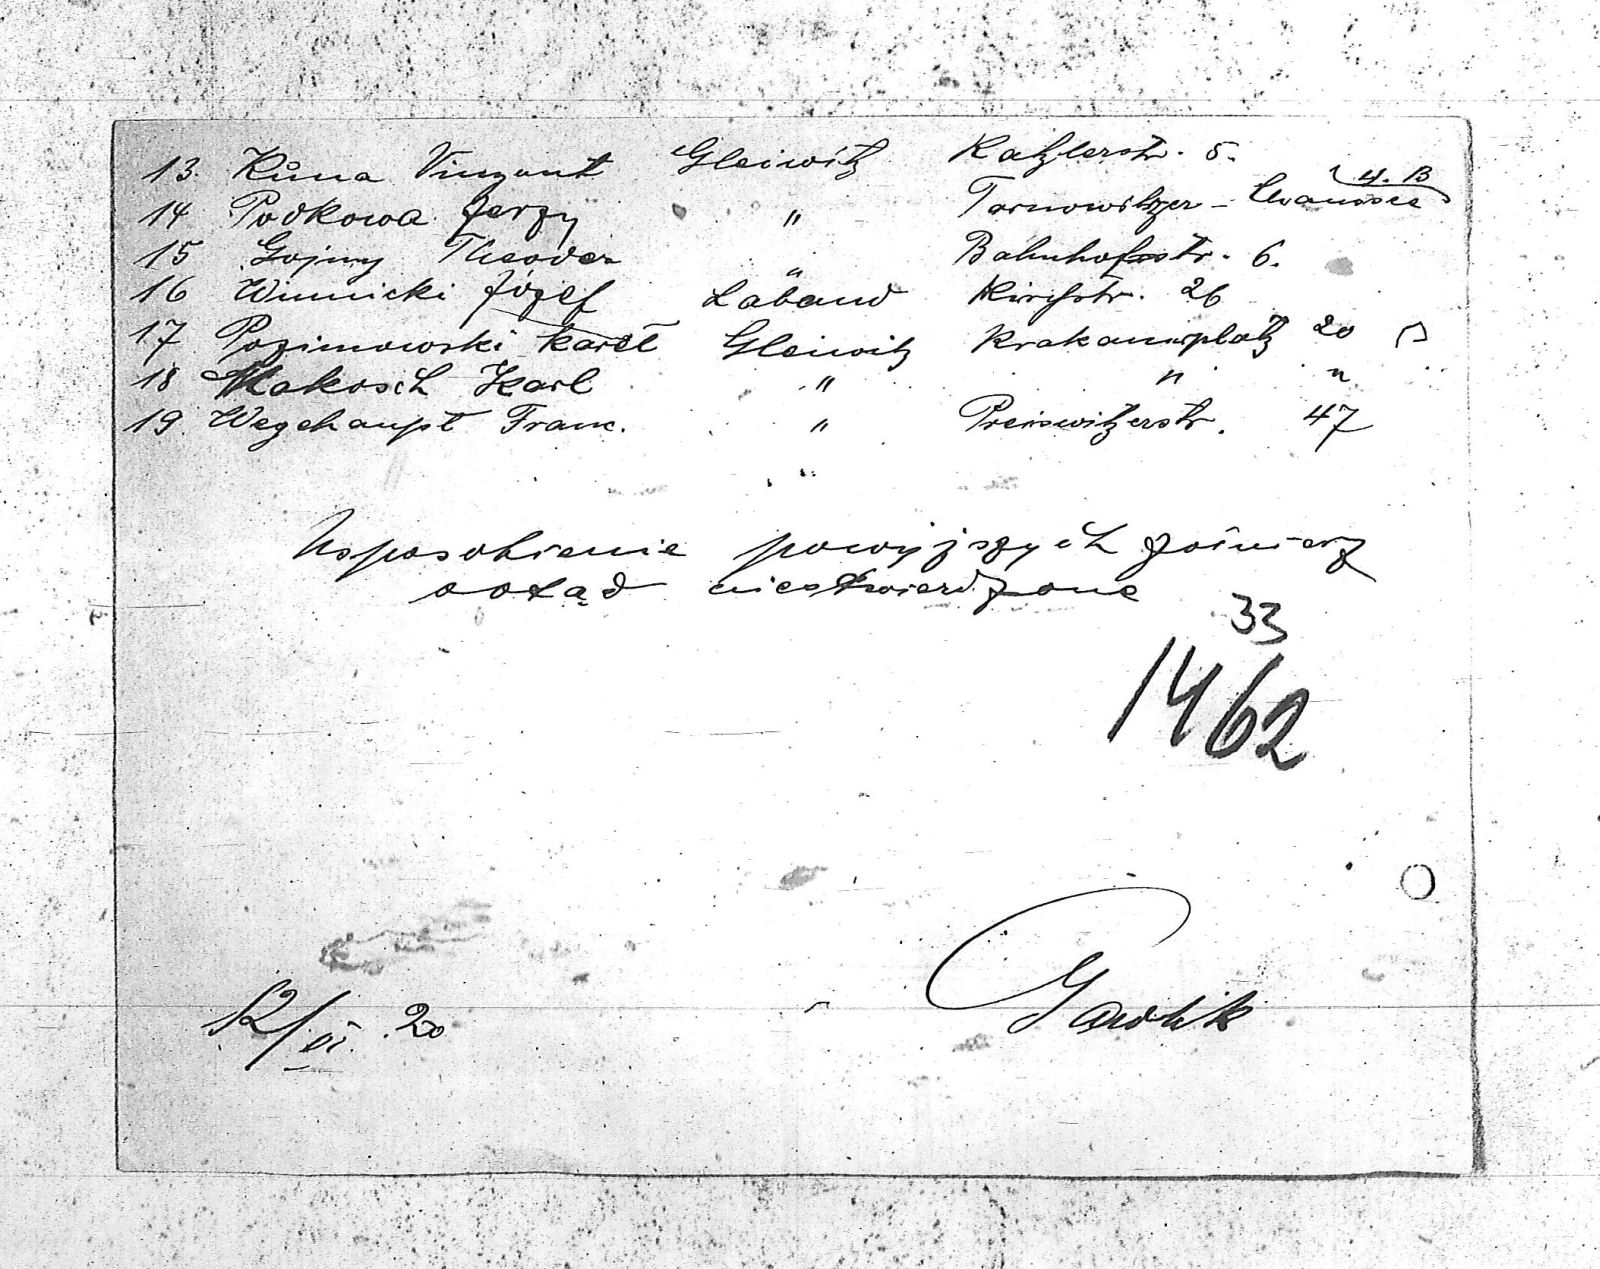 13. Kůna Vinzent Gleiwitz Katzlerstr. 5.
14 Podkowa Jerzy " Tarnowitzer-Chaussee 4. B
15 Gojny Theodor " Bahnhofstr. 6.
16 Winnicki Józef Laband Kirchstr. 26
17 Pozimowski Karol Gleiwitz Krakauerplatz 20
18 Makosch Karl " " "
19 Wegehaupt Franc. " Preiswitzerstr. 47
Usposobienie powyższych żołnierz
dotąd niestwierdzone
33
1462
12/VI. 20 Gawlik